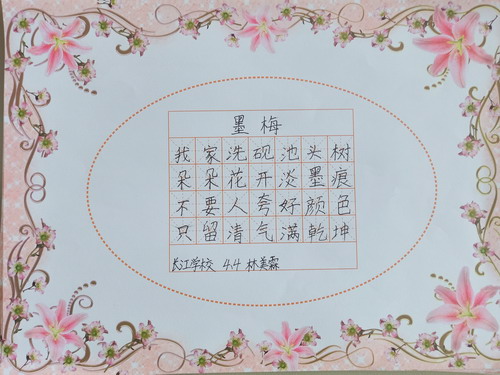 墨梅
我家洗砚池头树
朵朵花开淡墨痕
不要人夸好颜色
只留清气满乾坤
长江学校 4.4 林美霖